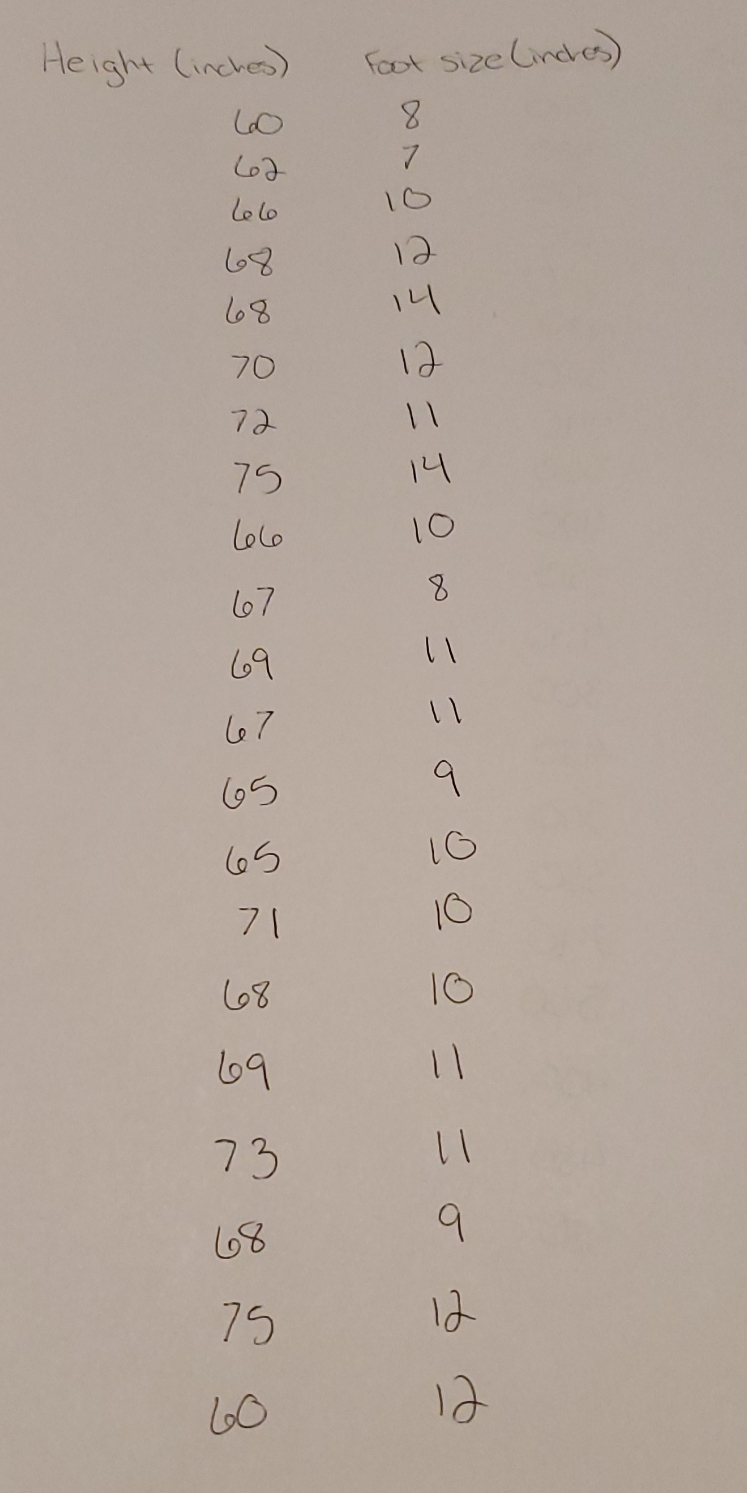 Height (inches) Foot size (inches)
60 8
62 7
66 10
68 12
68 14
70 12
72 11
75 14
66 10
67 8
69 11
67 11
65 9
65 10
71 10
68 10
69 11
73 11
68 9
75 12
60 12